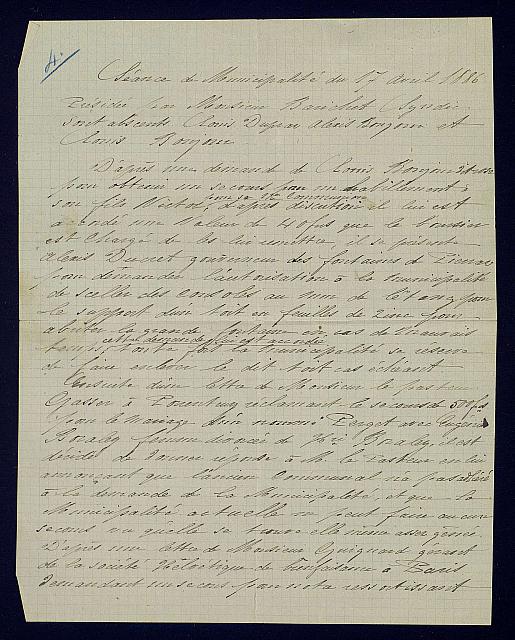 4.
Séance de Municipalité du 17 Avril 1886
Présidée par Monsieur Syndic
sont absents Clovis Alexis Bonjour et
Clovis Bonjour
D'après une demande de Clovis Bonjour
pour obtenir un secours pour un habillement à
pour sa 1re Communion
son fils Victor, d'après discution il lui est
accordé une Valeur de 40 frs que le boursier
est Chargé de les lui remettre, il se présente
Alexis gouverneur des fontaines de
pour demander l'autorisation à la Municipalité
de sceller des Consoles au mur de l'étang pour
le support d'un toit en feuilles de zinc pour
abriter la grande fontaine en cas de Mauvais
cette demande lui est accordée
temps, toute fois la Municipalité se réserve
de faire enlever le dit toit cas échéant
Ensuite d'une lettre de Monsieur le pasteur
à Porentruy réclamant le secours de 500 frs
pour le Mariage d'un nommé Perget avec Eugénie
femme divorcée de il est
décidé de donner réponse à Mr le Pasteur en lui
annonçant que l'ancien Communal n'a pas adhéré
à la demande de la Municipalité, et que la
Municipalité actuelle ne peut faire aucun
secours vu qu'elle se trouve elle même assez gênée
D'après une lettre de Monsieur Guignard gérant
de la société Helvétique de bienfaisance à Paris
demandant un secours pour notre ressortissant